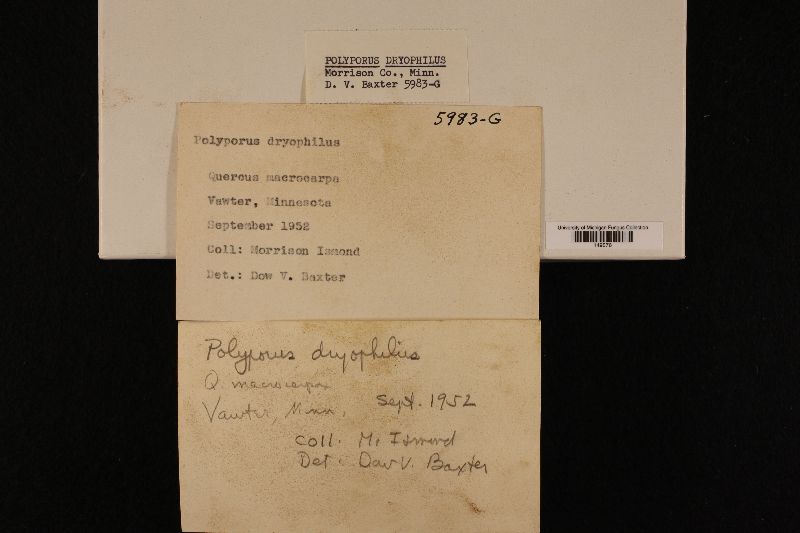 POLYPORUS DRYOPHILUS
Morrison Co., Minn.
D. V. Baxter 5983-G
5983-G
Polyporus dryophilus
Quercus macrocarpa
Vawter, Minnesota
September 1952
Coll: Morrison Ismond
Det.: Dow V. Baxter
University of Michigan Fungus Collection
Polyporus dryophilus
Q. macrocarpa
Vawter, Minn.
Sept. 1952
Coll. M. Ismond
Det. Dow V. Baxter